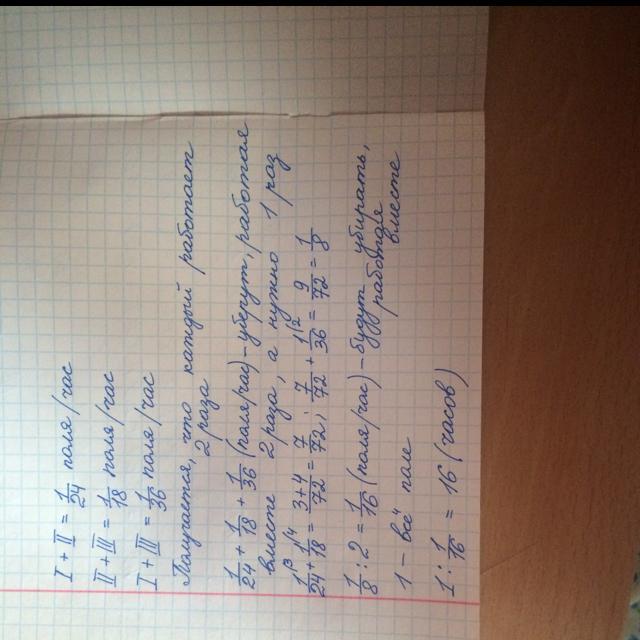 I + II = 1/24 поля/час
II + III = 1/18 поля/час
I + III = 1/36 поля/час
Получается, что каждый работает
2 раза
1/24 + 1/18 + 1/36 (поля/час) - уберут, работая
вместе 2 раза, а нужно 1 раз
1/24 ^3 + 1/18 ^4 = 3+4/72 = 7/72; 7/72 + 1/36 ^2 = 9/72 = 1/8
1/8 : 2 = 1/16 (поля/час) - будут убирать,
работая
вместе
1 - всё поле
1 : 1/16 = 16 (часов)